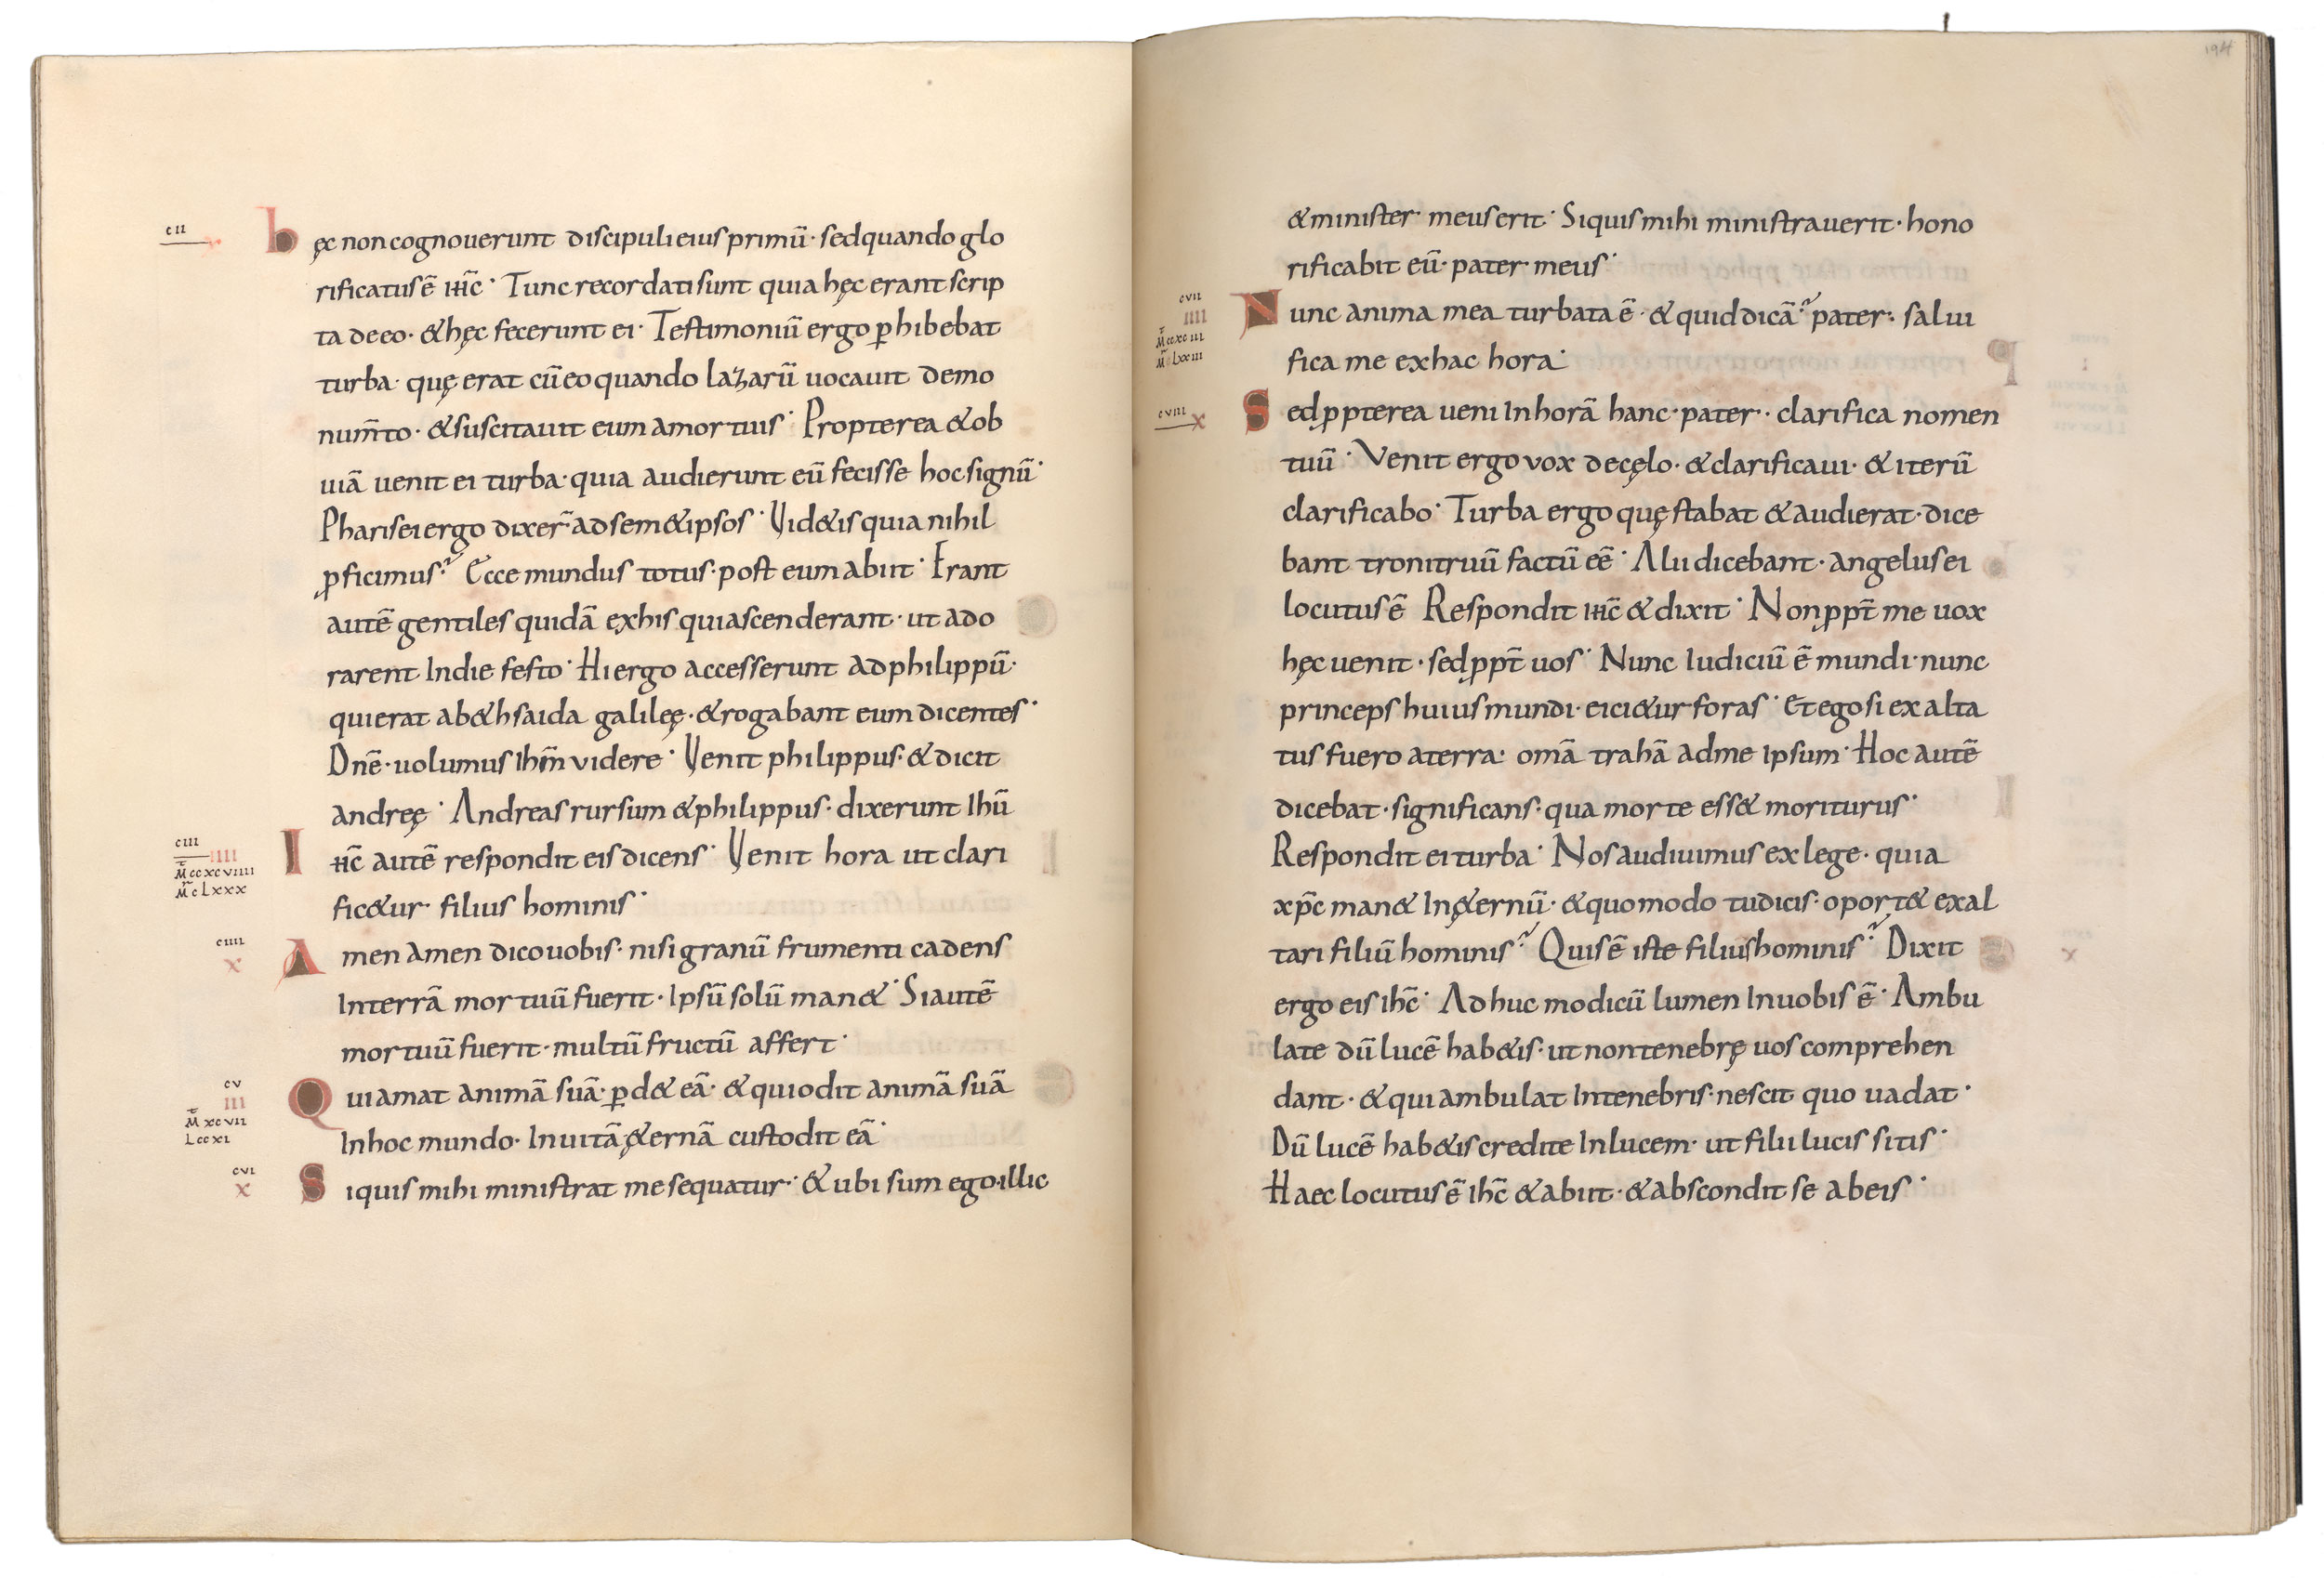 cii
hęc non cognouerunt discipuli eius primū· sed quando glo
rificatus ē ihc̄· Tunc recordati sunt quia hęc erant scrip
ta de eo· & hęc fecerunt ei· Testimoniū ergo ꝑhibebat
turba· quę erat cū eo quando lazarū uocauit demo
num̄to· & suscitauit eum a mortuis· Propterea & ob
uiā uenit ei turba· quia audierunt eū fecisse hoc signū·
Pharisei ergo dixer̄ ad sem&ipsos· Uid&is quia nihil
ꝓficimus? Ecce mundus totus· post eum abiit· Erant
autē gentiles quidā ex his qui ascenderant· ut ado
rarent In die festo· Hi ergo accesserunt ad philippū·
qui erat a b&hsaida galileę· & rogabant eum dicentes·
Dnē· uolumus ihm̄ videre· Uenit philippus· & dicit
andreę· Andreas rursum & philippus· dixerunt ihū
ciii
iiii
M̄ ccxcviiii
M̄ cLxxx
Ihc̄ autē respondit eis dicens· Uenit hora ut clari
fic&ur· filius hominis·
ciiii
x
Amen amen dico uobis· nisi granū frumenti cadens
In terrā mortuū fuerit· Ipsū solū man&· Si autē
mortuū fuerit· multū fructū affert·
cv
iii
M̄ xcvii
Lccxi
Qui amat animā suā· ꝑd& eā· & qui odit animā suā
In hoc mundo· In uitā ę&ernā custodit eā·
cvi
x
Si quis mihi ministrat me sequatur· & ubi sum ego illic
194
& minister meus erit· Si quis mihi ministrauerit· hono
rificabit eū· pater meus·
cvii
iiii
M̄ ccxciii
M̄ Lxxiii
Nunc anima mea turbata ē· & quid dicā? pater· salui
fica me ex hac hora·
cviii
x
Sed ꝓpterea ueni In horā hanc· pater· clarifica nomen
tuū· Venit ergo vox de cęlo· & clarificaui· & iterū
clarificabo· Turba ergo quę stabat & audierat· dice
bant tronitruū factū eē· Alii dicebant· angelus ei
locutus ē Respondit ihc̄ & dixit· Non ꝓpt̄ me uox
hęc uenit· sed ꝓpt̄ uos· Nunc Iudiciū ē mundi· nunc
princeps huius mundi· eici&ur foras· Et ego si exalta
tus fuero a terra· omā trahā ad me Ipsum· Hoc autē
dicebat· significans· qua morte ess& moriturus·
Respondit ei turba· Nos audiuimus ex lege· quia
xp̄c man& In ę&ernū· & quomodo tu dicis· oport& exal
tari filiū hominis? Quis ē iste filius hominis? Dixit
ergo eis ihc̄· Adhuc modicū lumen In uobis ē· Ambu
late dū lucē hab&is· ut non tenebrę uos comprehen
dant· & qui ambulat In tenebris· nescit quo uadat·
Dū lucē hab&is credite In lucem· ut filii lucis sitis·
Haec locutus ē ihc̄ & abiit· & abscondit se ab eis·